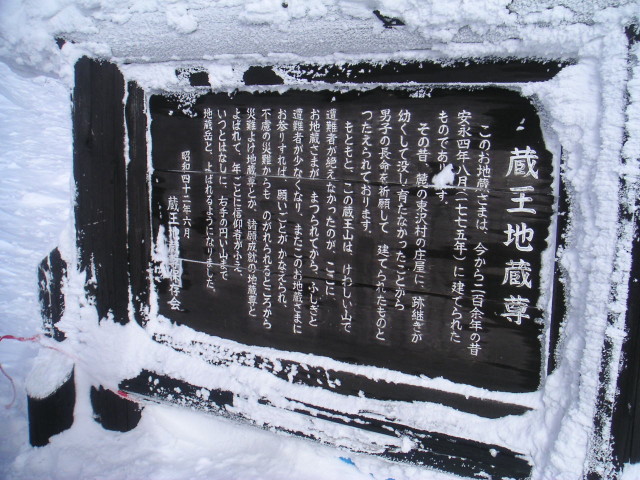 蔵王地蔵尊
このお地蔵さまは、今から二百余年の昔
安永四年八月(一七七五年)に建てられた
ものであります。
その昔、麓の東沢村の庄屋に、跡継ぎが
幼くして没し育たなかったことから
男子の長命を祈願して 建てられたものと
つたえられております。
もともと、この蔵王山は、けわしい山で
遭難者が絶えなかったのが、ここに
お地蔵さまが まつられてから、ふしぎと
遭難者が少なくなり、またこのお地蔵さまに
お参りすれば、願いごとが かなえられ、
不慮の災難からも のがれられるところから
災難よけ地蔵尊とか、諸願成就の地蔵尊と
よばれて、年ごとに信仰者がふえ、
いつとはなしに、右手の円い山まで
地蔵岳と、よばれるようになりました。
昭和四十二年六月
蔵王地蔵尊 会